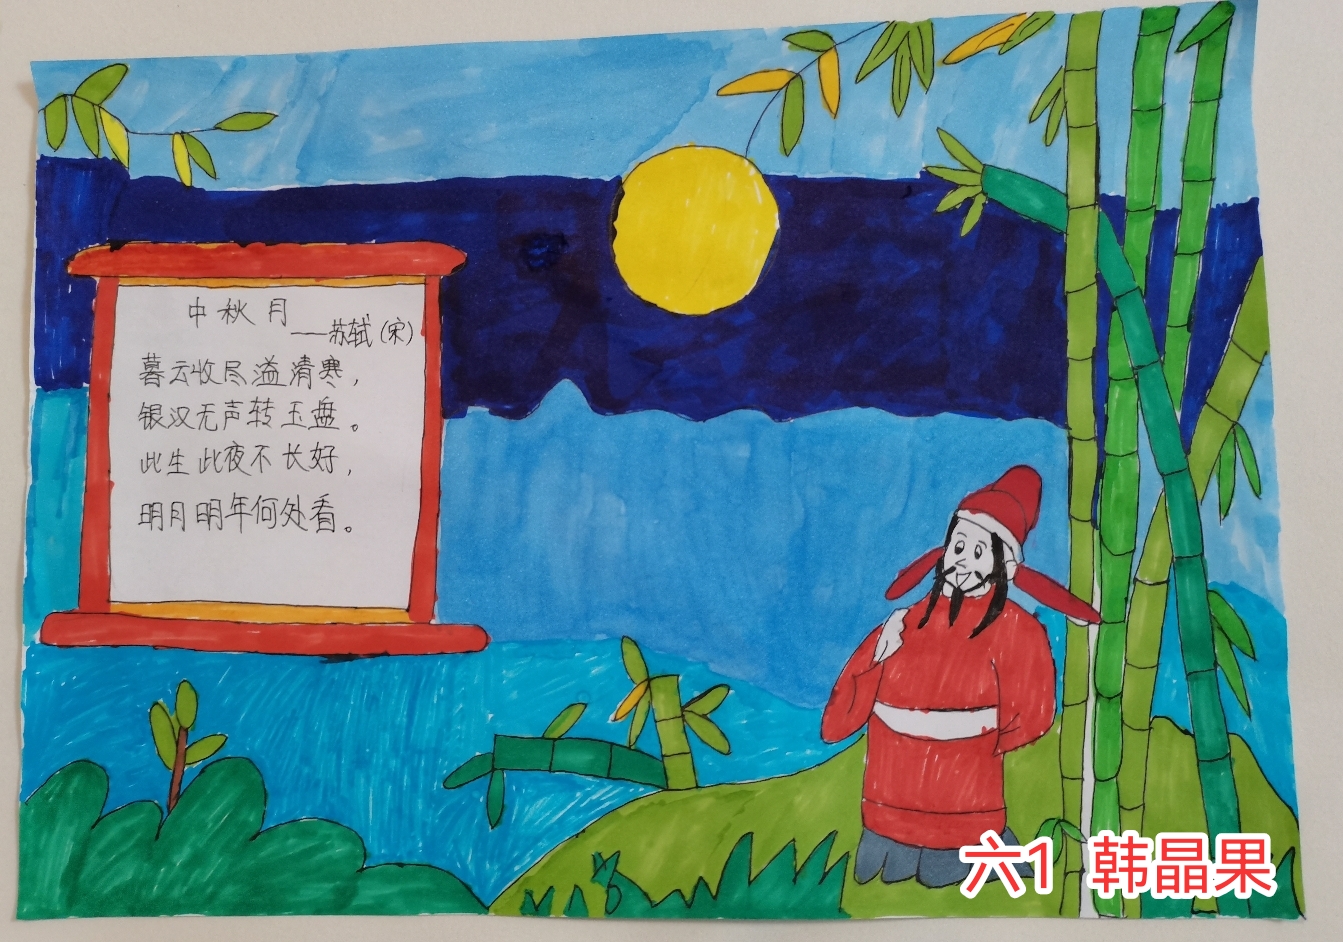 中秋月
——苏轼(宋)
暮云收尽溢清寒，
银汉无声转玉盘。
此生此夜不长好，
明月明年何处看。
六1 韩晶果